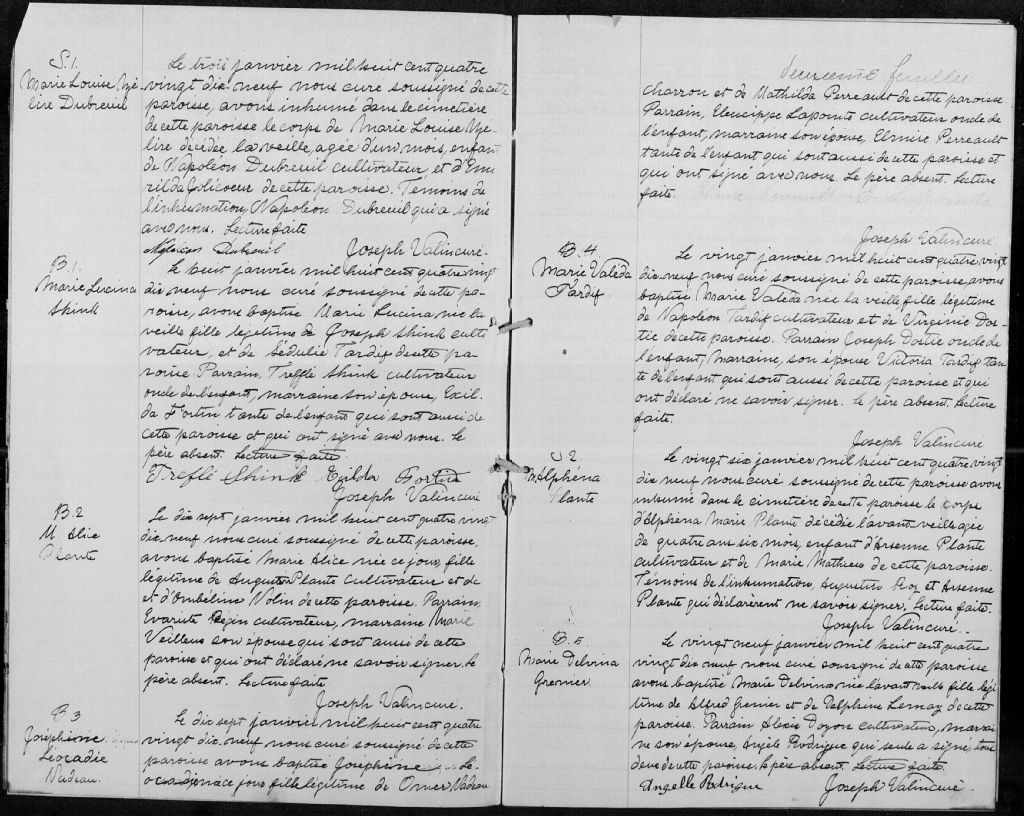 S.1.
Marie Louise Mé
lire Dubreuil
Le trois janvier mil huit cent quatre
vingt dix-neuf nous curé soussigné de cette
paroisse, avons inhumé dans le cimetière
de cette paroisse le corps de Marie Louise Mé-
lire décédée la veille, agée d'un mois, enfant
de Napoléon Dubreuil cultivateur, et d'Eme
rilda Jolicoeur de cette paroisse. Témoins de
l'inhumation, Napoléon Dubreuil qui a signé
avec nous. Lecture faite
Napoléon Dubreuil Joseph Valincuré.
B.1.
Marie Lucina
Shink
Le huit janvier mil huit cent quatre vingt
dix neuf nous curé soussigné de cette pa-
roisse, avons baptisé Marie Lucina née la
veille fille légitime de Joseph Shink culti
vateur, et de Sédulie Tardif de cette pa-
roisse. Parrain, Trefflé Shink cultivateur
oncle de l'enfant, marraine son épouse, Exil-
da Fortin tante de l'enfant qui sont aussi de
cette paroisse et qui ont signé avec nous. Le
père absent. Lecture faite.
Trefflé Shink Exilda Fortin
Joseph Valincuré
B.2
M. Alice
Plante
Le dix sept janvier mil huit cent quatre vingt
dix neuf nous curé soussigné de cette paroisse,
avons baptisé Marie Alice née ce jour, fille
légitime de Augustin Plante cultivateur et de
et d'Ombéline Nolin de cette paroisse. Parrain,
Evariste Bégin cultivateur, marraine Marie
Veilleux son épouse qui sont aussi de cette
paroisse et qui ont déclaré ne savoir signer. Le
père absent. Lecture faite
Joseph Valincuré.
B 3
Josephine
Léocadie
Nadeau.
Le dix sept janvier mil huit cent quatre
vingt dix-neuf nous curé soussigné de cette
paroisse avons baptisé Josephine Lé-
ocadie née ce jour, fille légitime de Omer Nadeau
deuxième feuillet
Charron et de Mathilda Perreault de cette paroisse.
Parrain, Eleucippe Lapointe cultivateur oncle de
l'enfant, marraine son épouse, Elmire Perreault
tante de l'enfant qui sont aussi de cette paroisse et
qui ont signé avec nous. Le père absent. Lecture
faite.
Joseph Valincuré
B.4.
Marie Valéda
Tardif.
Le vingt janvier mil huit cent quatre vingt
dix-neuf nous curé soussigné de cette paroisse, avons
baptisé Marie Valéda née la veille fille légitime
de Napoléon Tardif cultivateur et de Virginie Dos-
tie de cette paroisse. Parrain Joseph Dostie oncle de
l'enfant, Marraine, son épouse Victoria Tardif tan
te de l'enfant qui sont aussi de cette paroisse et qui
ont déclaré ne savoir signer. Le père absent. Lecture
faite.
Joseph Valincuré
S 2.
M. Alphéna
Plante
Le vingt six janvier mil huit cent quatre vingt
dix neuf nous curé soussigné de cette paroisse avons
inhumé dans le cimetière de cette paroisse le corps
d'Alphéna Marie Plante décédée l'avant veille agée
de quatre ans six mois, enfant d'Arsenne Plante
cultivateur et de Marie Mathieu de cette paroisse.
Témoins de l'inhumation, Augustin Roy et Arsenne
Plante qui déclarèrent ne savoir signer, Lecture faite.
Joseph Valincuré.
B.5
Marie Delvina
Grenier.
Le vingt neuf janvier mil huit cent quatre
vingt dix neuf nous curé soussigné de cette paroisse
avons baptisé Marie Delvina née l'avant veille fille légi
time de Alfred Grenier et de Delphine Lemay de cette
paroisse. Parrain Alexis Doyon cultivateur, marrai
ne son épouse, Angèle Rodrigue qui seule a signé, tous
deux de cette paroisse. Le père absent. Lecture faite.
Angelle Rodrigue Joseph Valincuré